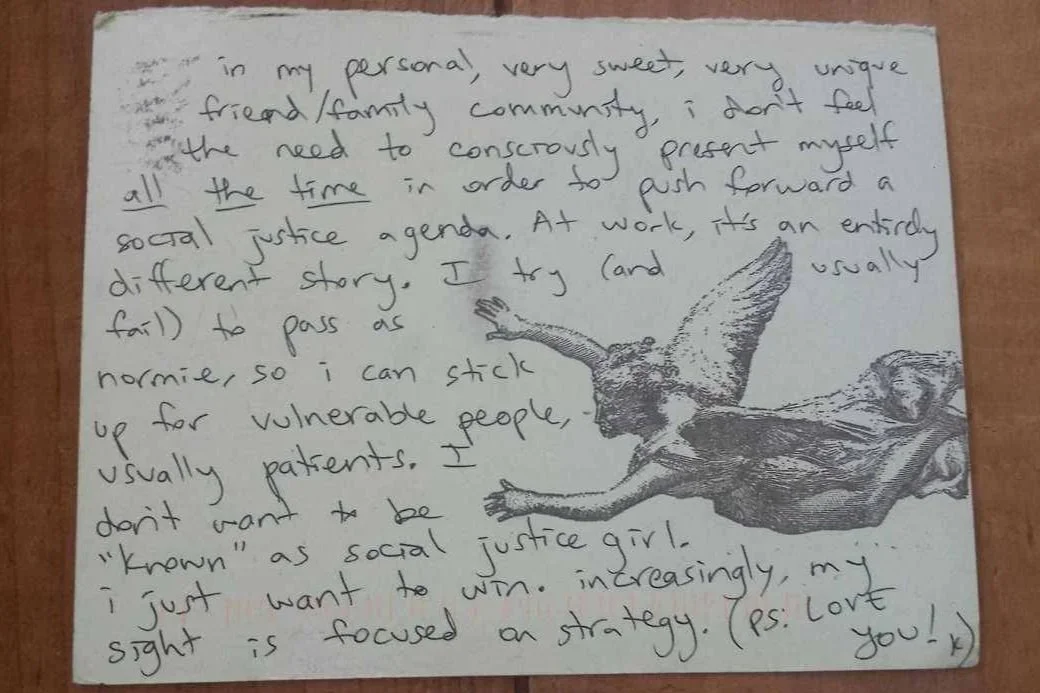 in my personal, very sweet, very unique
friend/family community, i don't feel
the need to consciously present myself
all the time in order to push forward a
social justice agenda. At work, it's an entirely
different story. I try (and usually
fail) to pass as
normie, so i can stick
up for vulnerable people,
usually patients. I
don't want to be
"known" as social justice girl.
i just want to win. increasingly, my
sight is focused on strategy. (ps: LovE
you! k)